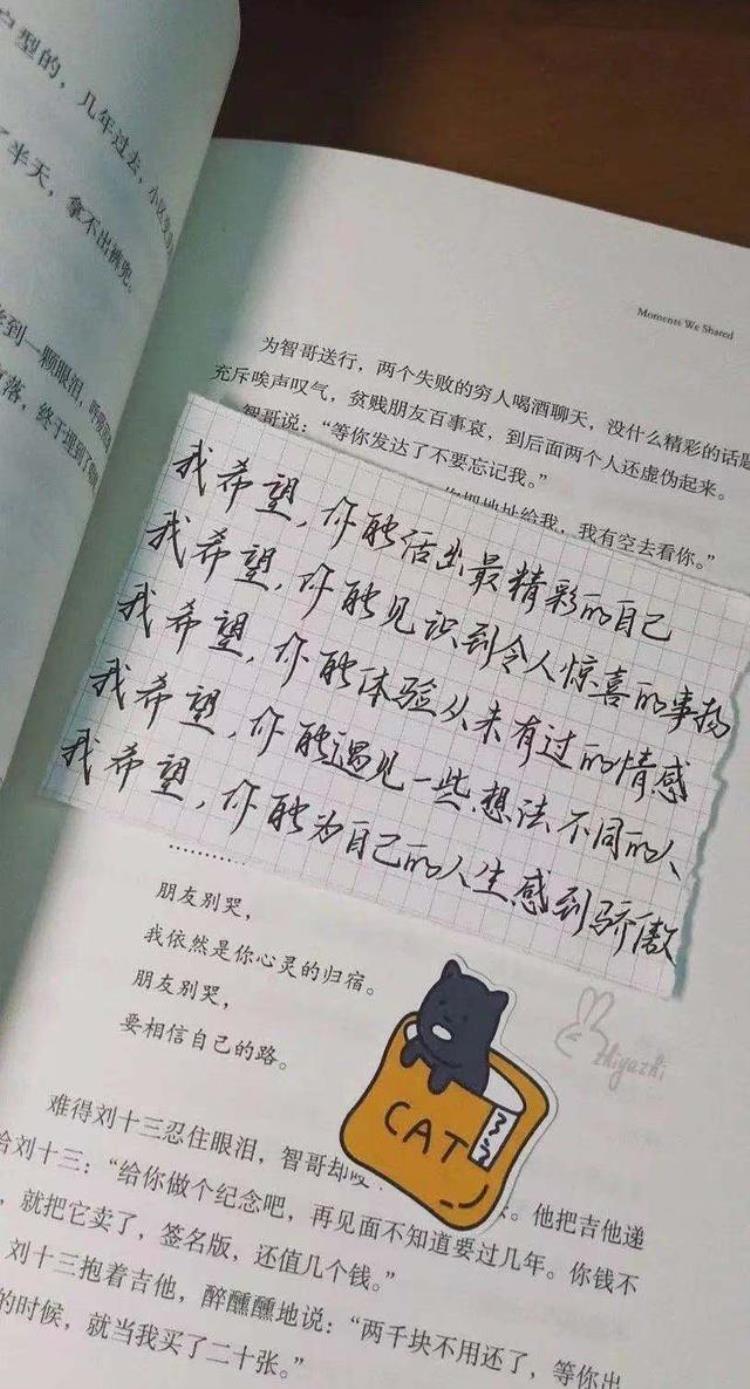 户型的，几年过去，小区
了半天，拿不出裤兜。
到一颗眼泪，
落，终于埋到了
Moments We Shared
为智哥送行，两个失败的穷人喝酒聊天，没什么精彩的话题
充斥唉声叹气，贫贱朋友百事哀，到后面两个人还虚伪起来。
智哥说：“等你发达了不要忘记我。”
你把地址给我，我有空去看你。”
我希望，你能活出最精彩的自己
我希望，你能见识到令人惊喜的事物
我希望，你能体验从未有过的情感
我希望，你能遇见一些想法不同的人
我希望，你能为自己的人生感到骄傲
…………
朋友别哭，
我依然是你心灵的归宿。
朋友别哭，
要相信自己的路。
CAT
zhiyazhi
难得刘十三忍住眼泪，智哥却
。他把吉他递
给刘十三：“给你做个纪念吧，再见面不知道要过几年。你钱不
，就把它卖了，签名版，还值几个钱。”
刘十三抱着吉他，醉醺醺地说：“两千块不用还了，等你出
的时候，就当我买了二十张。”